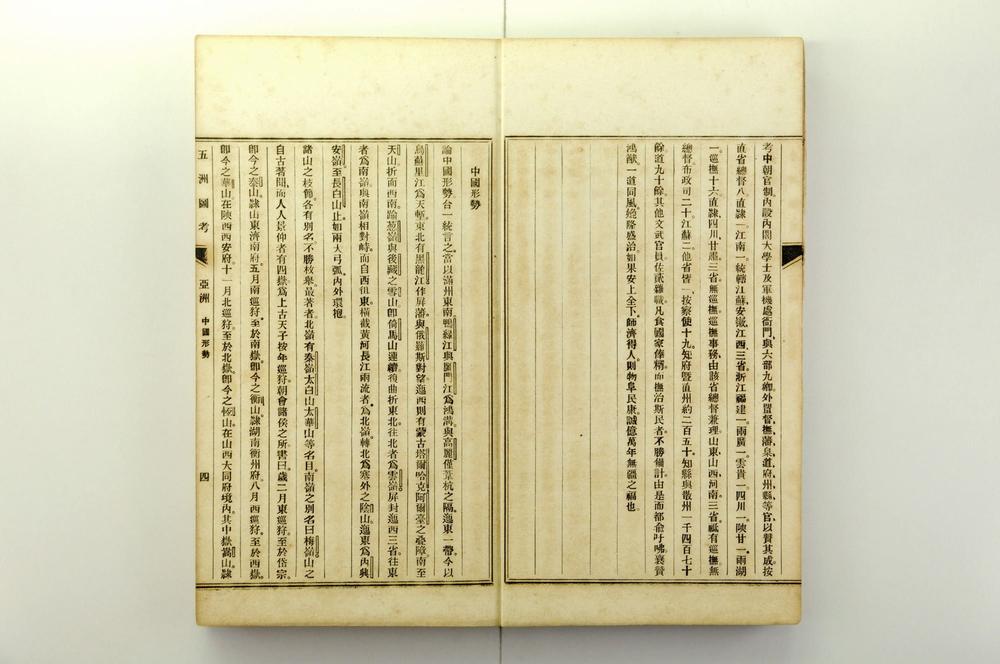 考中朝官制內設內閣大學士及軍機處衙門與六部九卿外置督撫藩臬道府州縣等官以贊其成按
直省總督八直隷一江南一統轄江蘇安徽江西三省浙江福建一兩廣一雲貴一四川一陝甘一兩湖
一巡撫十六直隷四川甘肅三省無巡撫巡撫事務由該省總督兼理山東山西河南三省祗有巡撫無
總督布政司二十江蘇二他省皆一按察使十九知府暨直州約二百五十知縣與散州一千四百七十
餘道九十餘其他文武官員佐貳雜職凡食國家俸糈而撫治斯民者不勝備計由是而都兪吁咈襄贊
鴻猷一道同風絶隆盛治如果安上全下師濟得人則物阜民康誠億萬年無疆之福也
中國形勢
論中國形勢合一統言之當以滿州東南鴨緑江與圖們江爲鴻溝與高麗僅葦杭之隔迤東一帶今以
烏蘇里江爲天塹東北有黑龍江作屏藩與俄羅斯對望迤西則有蒙古塔爾哈克阿爾臺之叠障南至
天山折而西南踰葱嶺與後藏之雪山卽倚馬山連續復曲折東北往北者爲雲嶺屏封迤西三省往東
者爲南嶺與南嶺相對峙而自西徂東橫截黃河長江兩流者爲北嶺轉北爲塞外之陰山迤東爲內興
安嶺至長白山止如兩大弓弧內外環抱
諸山之枝幹各有別名不勝枚舉最著者北嶺有秦嶺太白山太華山等名目南嶺之別名曰梅嶺山之
自古著聞而人人景仰者有四嶽爲上古天子按年巡狩朝會諸侯之所書曰歲二月東巡狩至於岱宗
卽今之泰山隷山東濟南府五月南巡狩至於南嶽卽今之衡山隷湖南衡州府八月西巡狩至於西嶽
卽今之華山在陝西西安府十一月北巡狩至於北嶽卽今之恆山在山西大同府境內其中嶽嵩山隷
五洲圖考
亞洲
中國形勢
四